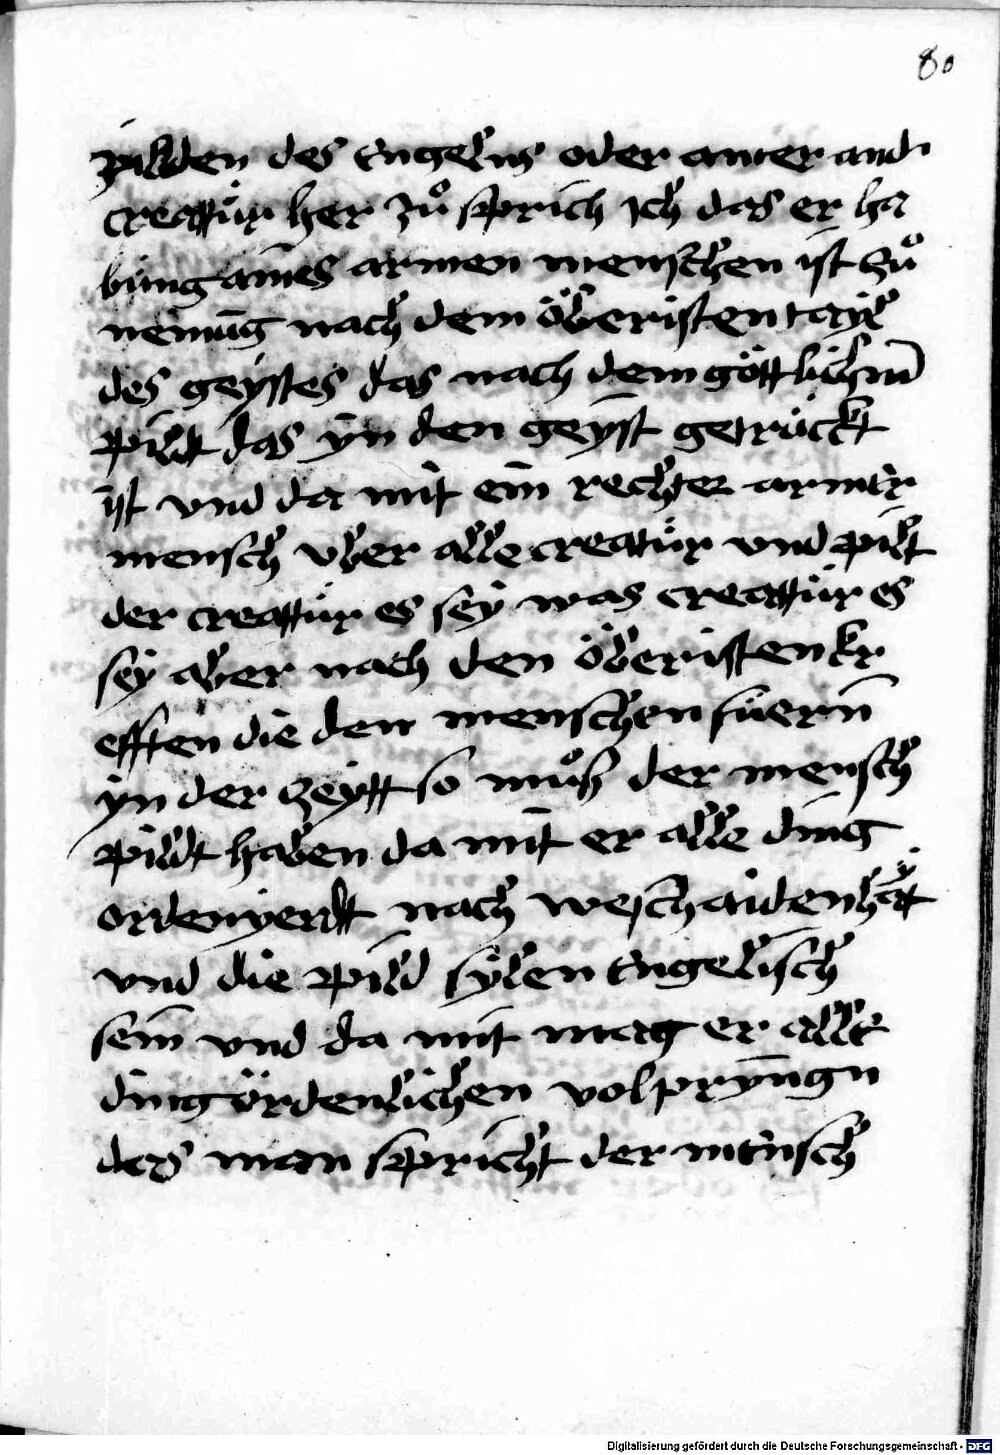 80
pilden des Engelns oder ainer and
creattür her zuͦ sprich Ich das er ha
bung aines armen menschen ist zuͦ
nemung nach dem öberisten tayl
des geystes das nach dem göttlichen
pildt das yn den geyst getrückt
ist vnd da mit ein rechter armer
mensch vber alle creatür vnd pilt
der creattür es sey was creattür es
sey aber nach den öberisten kr
efften die den menschen füern
yn der zeytt so muͦß der mensch
pildt haben da mit er alle ding
ordenyerdt nach beschaidenhaytt
vnd die pild sylen Engelisch
sein vnd da mit mag er alle
ding ördenlichen volpryngn
des man spricht der mensch
Digitalisierung gefördert durch die Deutsche Forschungsgemeinschaft - DFG